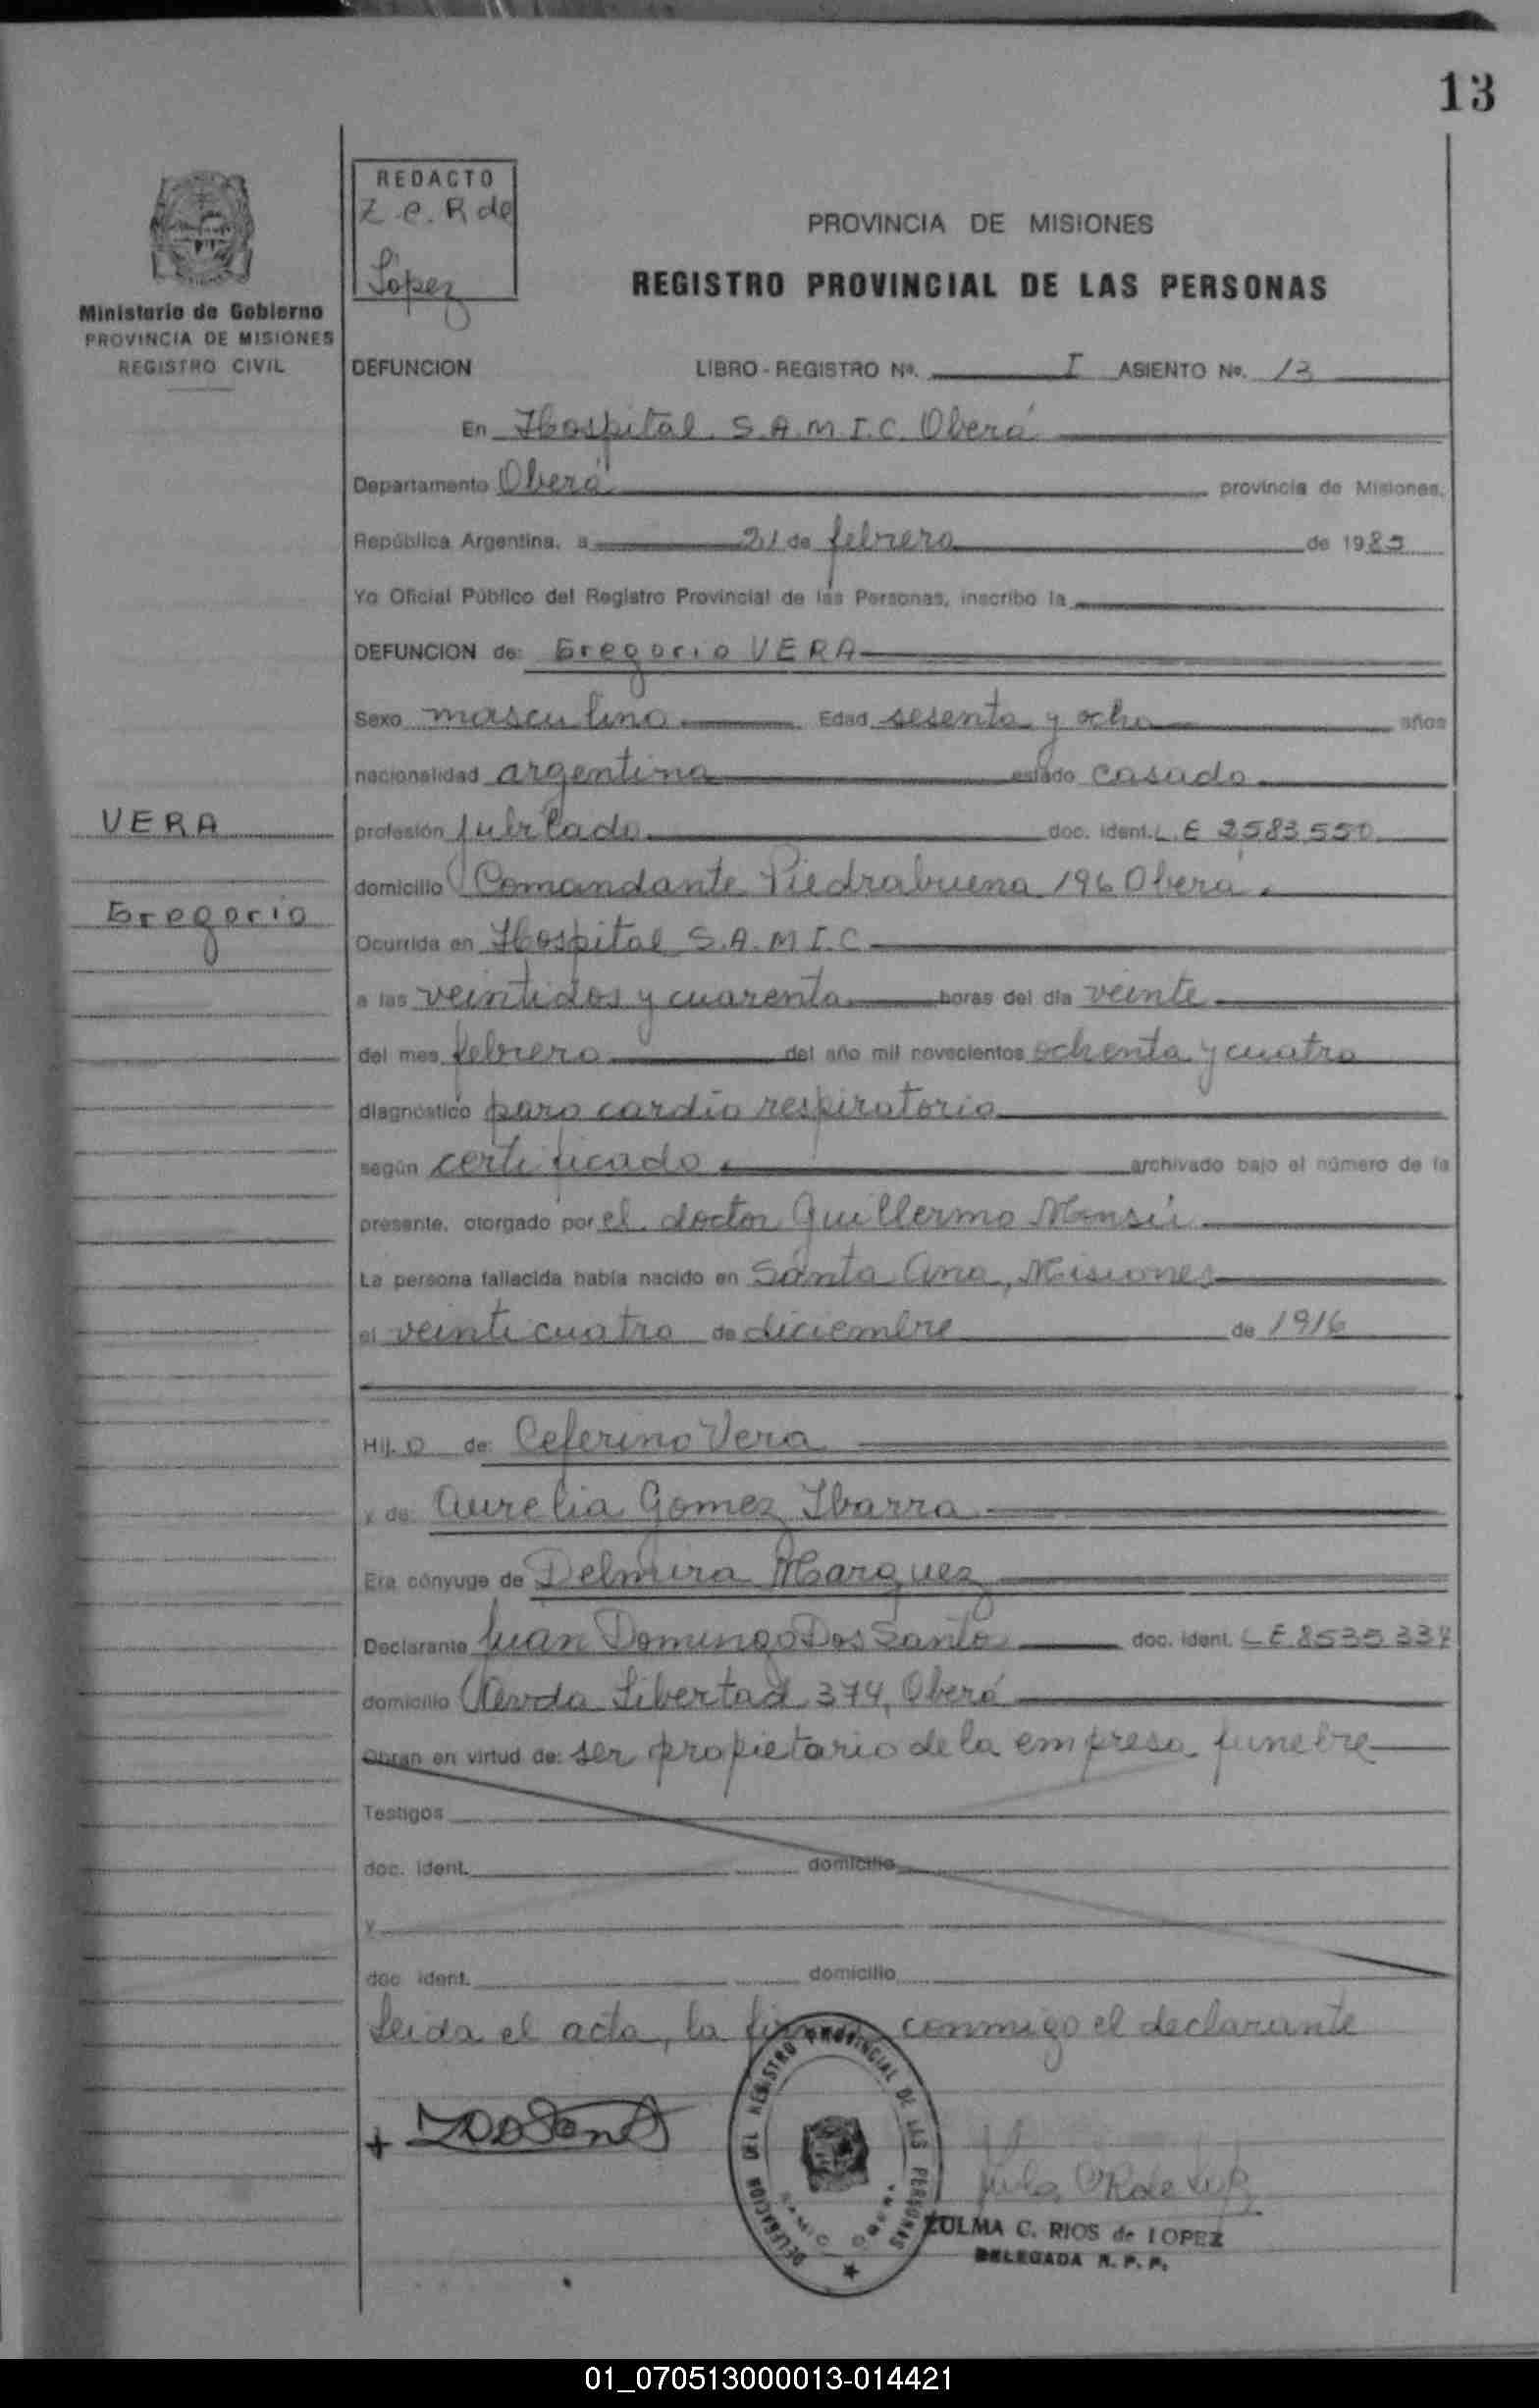 13
REDACTO
Z. C. R de
López
PROVINCIA DE MISIONES
REGISTRO PROVINCIAL DE LAS PERSONAS
Ministerio de Gobierno
PROVINCIA DE MISIONES
REGISTRO CIVIL
DEFUNCION LIBRO - REGISTRO Nº. I ASIENTO Nº. 13
En Hospital S.A.M.I.C. Oberá
Departamento Oberá provincia de Misiones,
República Argentina, a 21 de febrero de 1985
Yo Oficial Público del Registro Provincial de las Personas, inscribo la
DEFUNCION de: Gregorio VERA
Sexo masculino Edad sesenta y ocho años
nacionalidad argentina estado casado
VERA
profesión jubilado doc. ident. L E 2583550
domicilio Comandante Piedrabuena 196 Oberá.
Gregorio
Ocurrida en Hospital S.A.M.I.C.
a las veintidos y cuarenta horas del día veinte
del mes febrero del año mil novecientos ochenta y cuatro
diagnóstico paro cardio respiratorio
según certificado archivado bajo el número de la
presente, otorgado por el doctor Guillermo
La persona fallecida había nacido en Santa Ana, Misiones
el veinticuatro de diciembre de 1916
Hij o de: Ceferino Vera
y de: Aurelia Gomez Ibarra
Era cónyuge de Delmira Marquez
Declarante Juan Domingo Dos Santo doc. ident. L E 8535337
domicilio Avda Libertad 374, Oberá
Obran en virtud de: ser propietario de la empresa funebre
Testigos
doc. ident. domicilio
y
doc. ident. domicilio
Leida el acta, la firma conmigo el declarante
DELEGACION DEL REGISTRO PROVINCIAL DE LAS PERSONAS
ZULMA C. RIOS de LOPEZ
DELEGADA R. P. P.
01_070513000013-014421